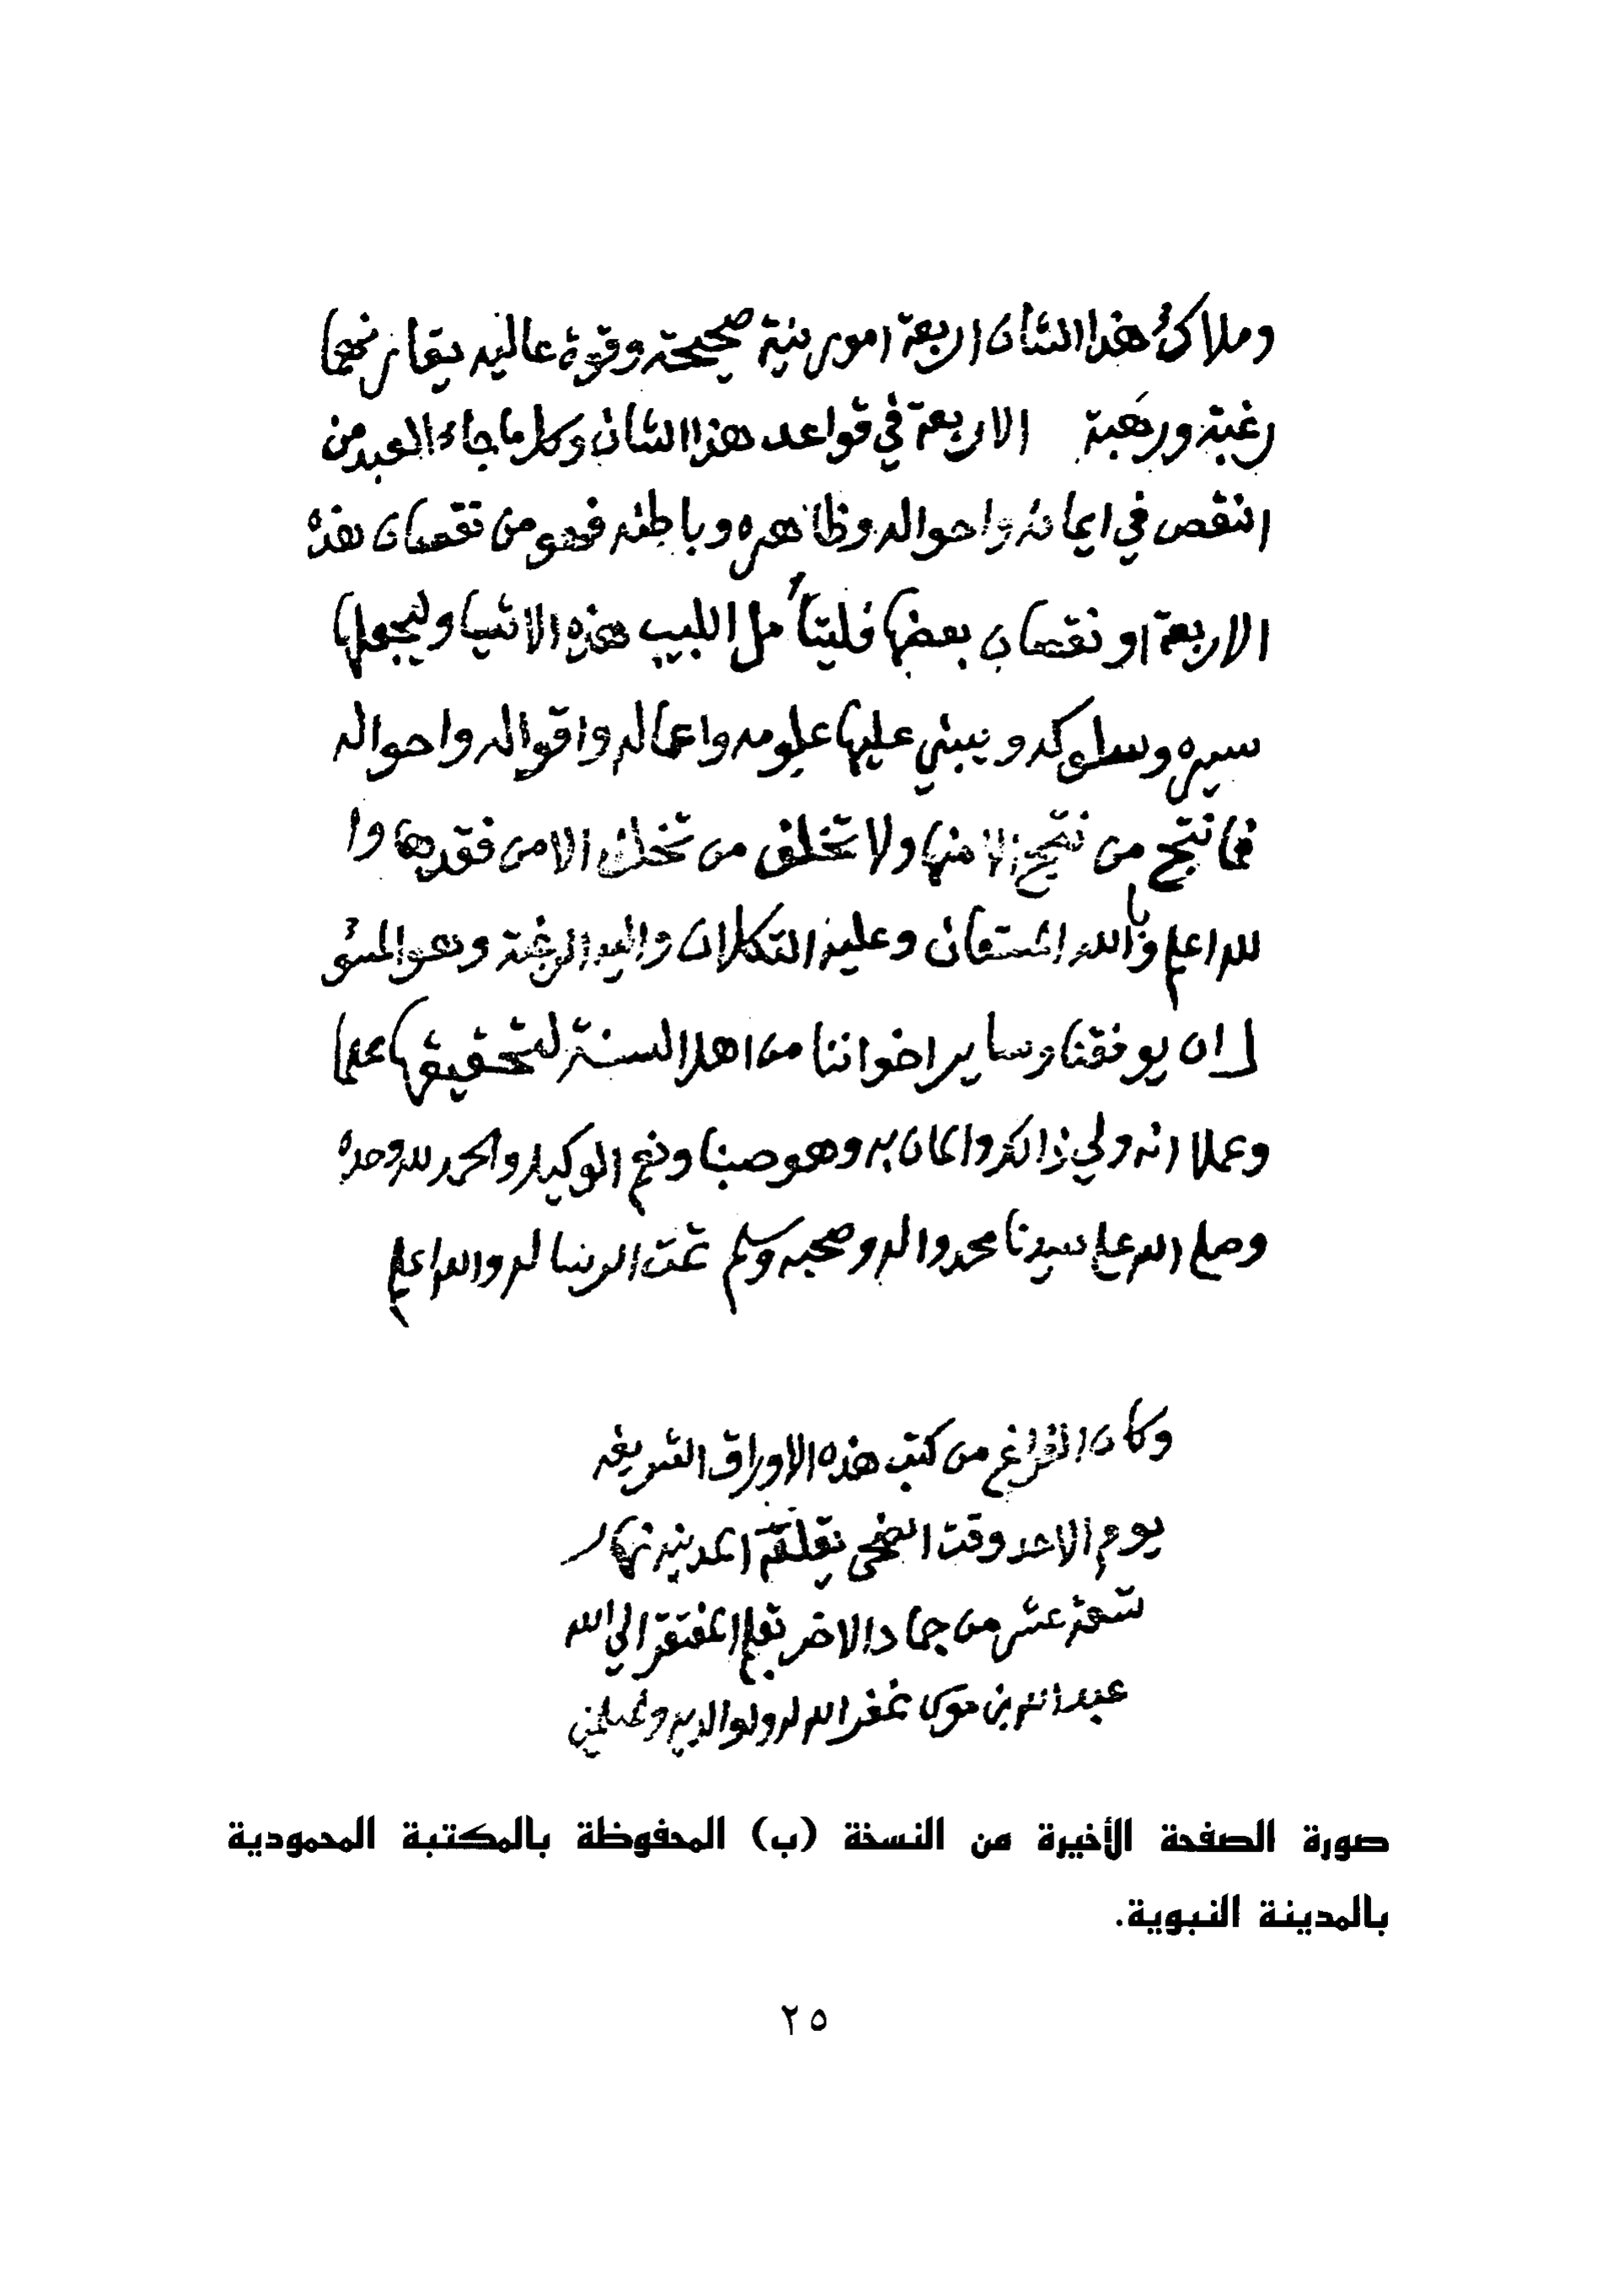 وملاك هذا الشان اربعة امور نية صحيحة وقوة عاليه يقارنهما
رغبة ورهبة الاربعة في قواعد هذا الشان وكلما جاء العبد من
النقص في ايمانه واحواله وظاهره وباطنه فهو من نقصان هذه
الاربعة او نقصان بعضها فليتأمل اللبيب هذه الاشيا وليجعلها
سيره وسلوكه ويبني عليها علومه واعماله واقواله واحواله
فما نتج من نتج الا منها ولا تخلف من تخلف الا من فقدها وا
لله اعلم وبالله المستعان وعليه التكلان واليه الرغبة وهو المسئو
ل ان يوفقنا وساير اخواننا من اهل السنة لتحقيقها علما
وعملا انه ولي ذالك والمان به وهو حسبنا ونعم الوكيل والحمد لله وحده
وصلى الله على سيدنا محمد واله وصحبه وسلم تمت الرسالة والله اعلم
وكان الفراغ من كتب هذه الاوراق الشريفه
يوم الاحد وقت الضحى المدينه نهار
عشر من جماد الاخر بقلم المفتقر الى الله
عبد الله بن موسى غفر الله له ولوالديه وللمسلمين
صورة الصفحة الأخيرة من النسخة (ب) المحفوظة بالمكتبة المحمودية
بالمدينة النبوية.
٢٥